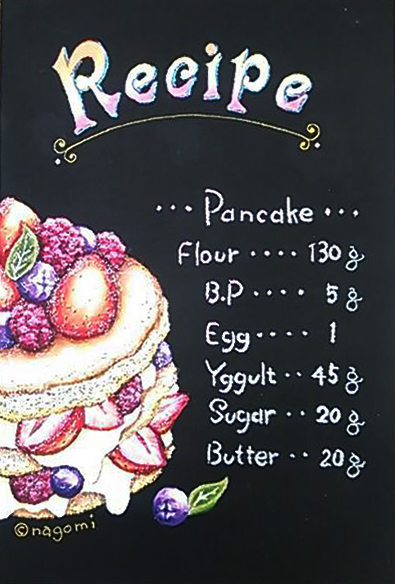 Recipe
... Pancake ...
Flour .... 130g
B.P .... 5g
Egg .... 1
Yggult .. 45g
Sugar .. 20g
Butter .. 20g
©nagomi